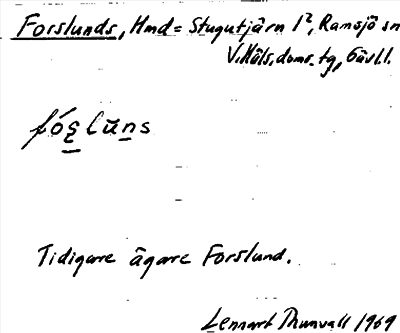 Forslunds, Hmd = Stugutjärn 1², Ramsjö sn
V. Häls. doms. tg, Gävl.l.
fóşlūns
Tidigare ägare Forslund.
Lennart Thunvall 1969